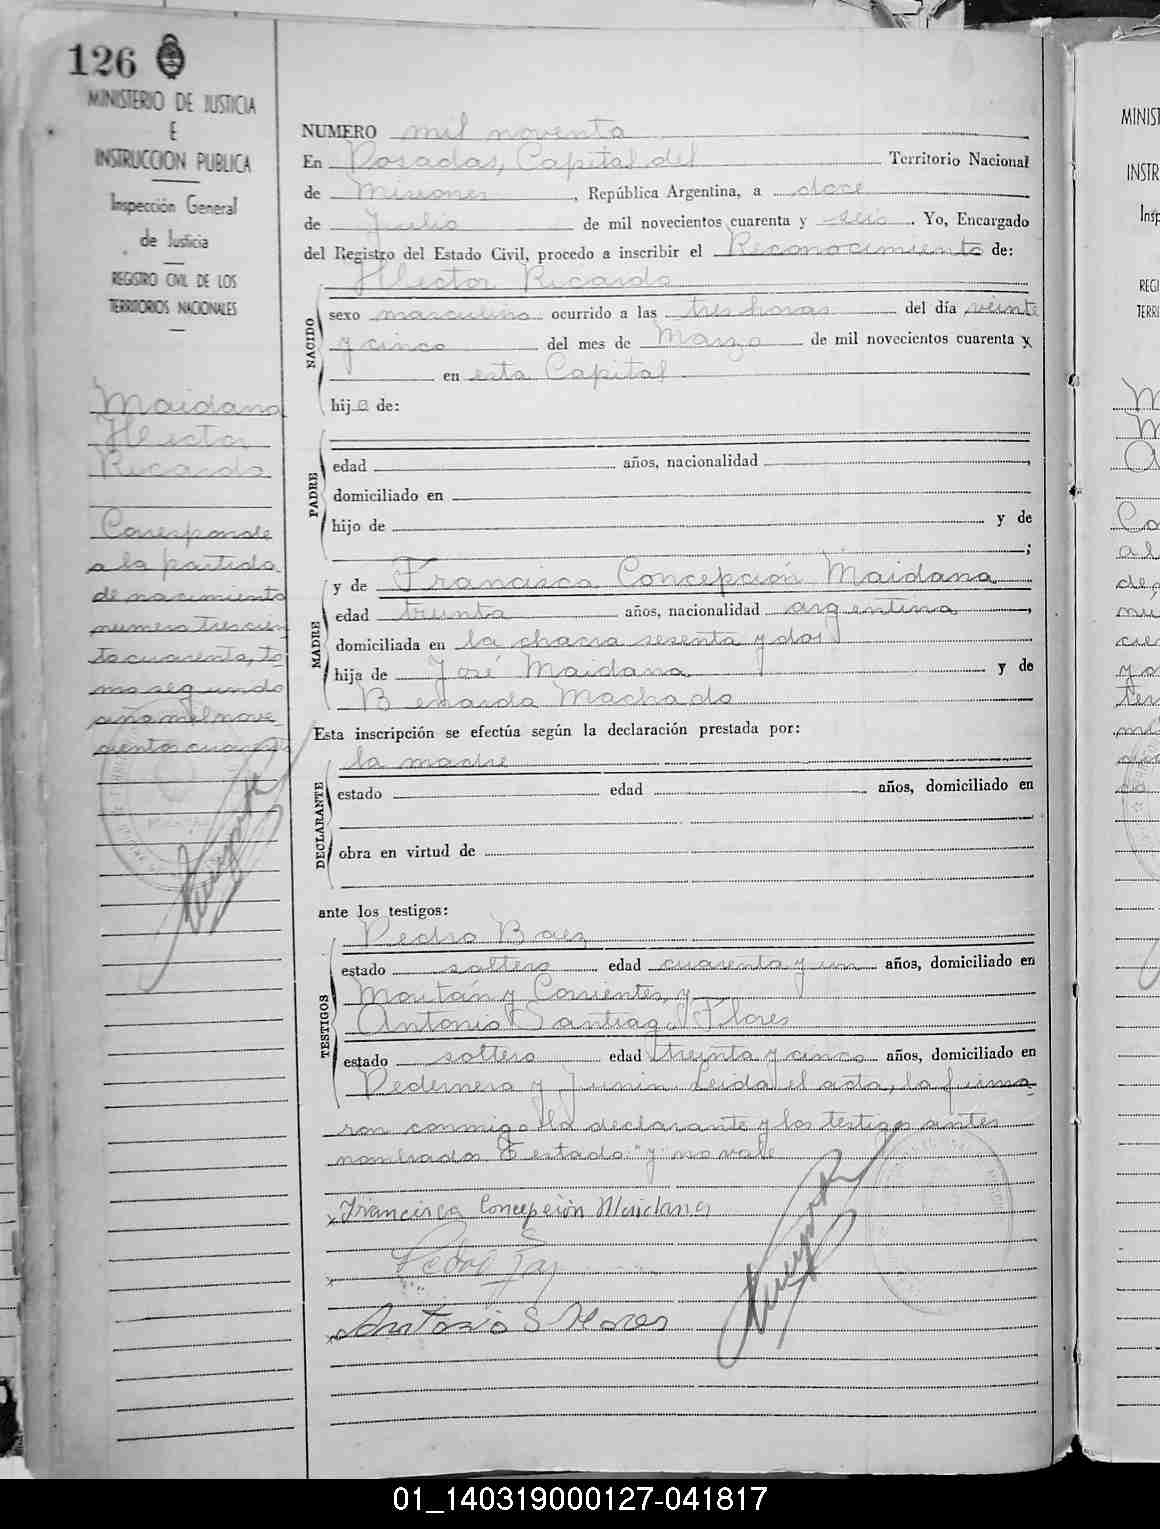 126
MINISTERIO DE JUSTICIA
E
INSTRUCCION PUBLICA
Inspección General
de Justicia
REGISTRO CIVIL DE LOS
TERRITORIOS NACIONALES
Maidana
Hector
Ricardo
Corresponde
a la partida
de nacimiento
numero trescien
to cuarenta, to
mo segundo
año mil nove
cientos cuarenta
NUMERO mil noventa
En Posadas, Capital del Territorio Nacional
de Misiones, República Argentina, a doce
de Julio de mil novecientos cuarenta y seis. Yo, Encargado
del Registro del Estado Civil, procedo a inscribir el Reconocimiento de:
Hector Ricardo
NACIDO
sexo masculino ocurrido a las tres horas del día veinte
y cinco del mes de Marzo de mil novecientos cuarenta y
en esta Capital
hijo de:
PADRE
edad años, nacionalidad
domiciliado en
hijo de y de
;
MADRE
y de Francisca Concepción Maidana
edad treinta años, nacionalidad argentina,
domiciliada en la chacra sesenta y dos
hija de José Maidana y de
Benarda Machado
Esta inscripción se efectúa según la declaración prestada por:
la madre
DECLARANTE
estado edad años, domiciliado en
obra en virtud de
ante los testigos:
TESTIGOS
Pedro Baez
estado soltero edad cuarenta y un años, domiciliado en
y Corrientes, y
Antonio Santiago Flores
estado soltero edad treinta y cinco años, domiciliado en
Pedernera y Junin. Leida el acta, la firma-
ron conmigo la declarante y los testigos antes
nombrados. E estado "y" no vale
Francisca Concepción Maidana
Pedro
Antonio S Flores
MINIST
INSTR
Insp
REGI
TERRI
01_140319000127-041817